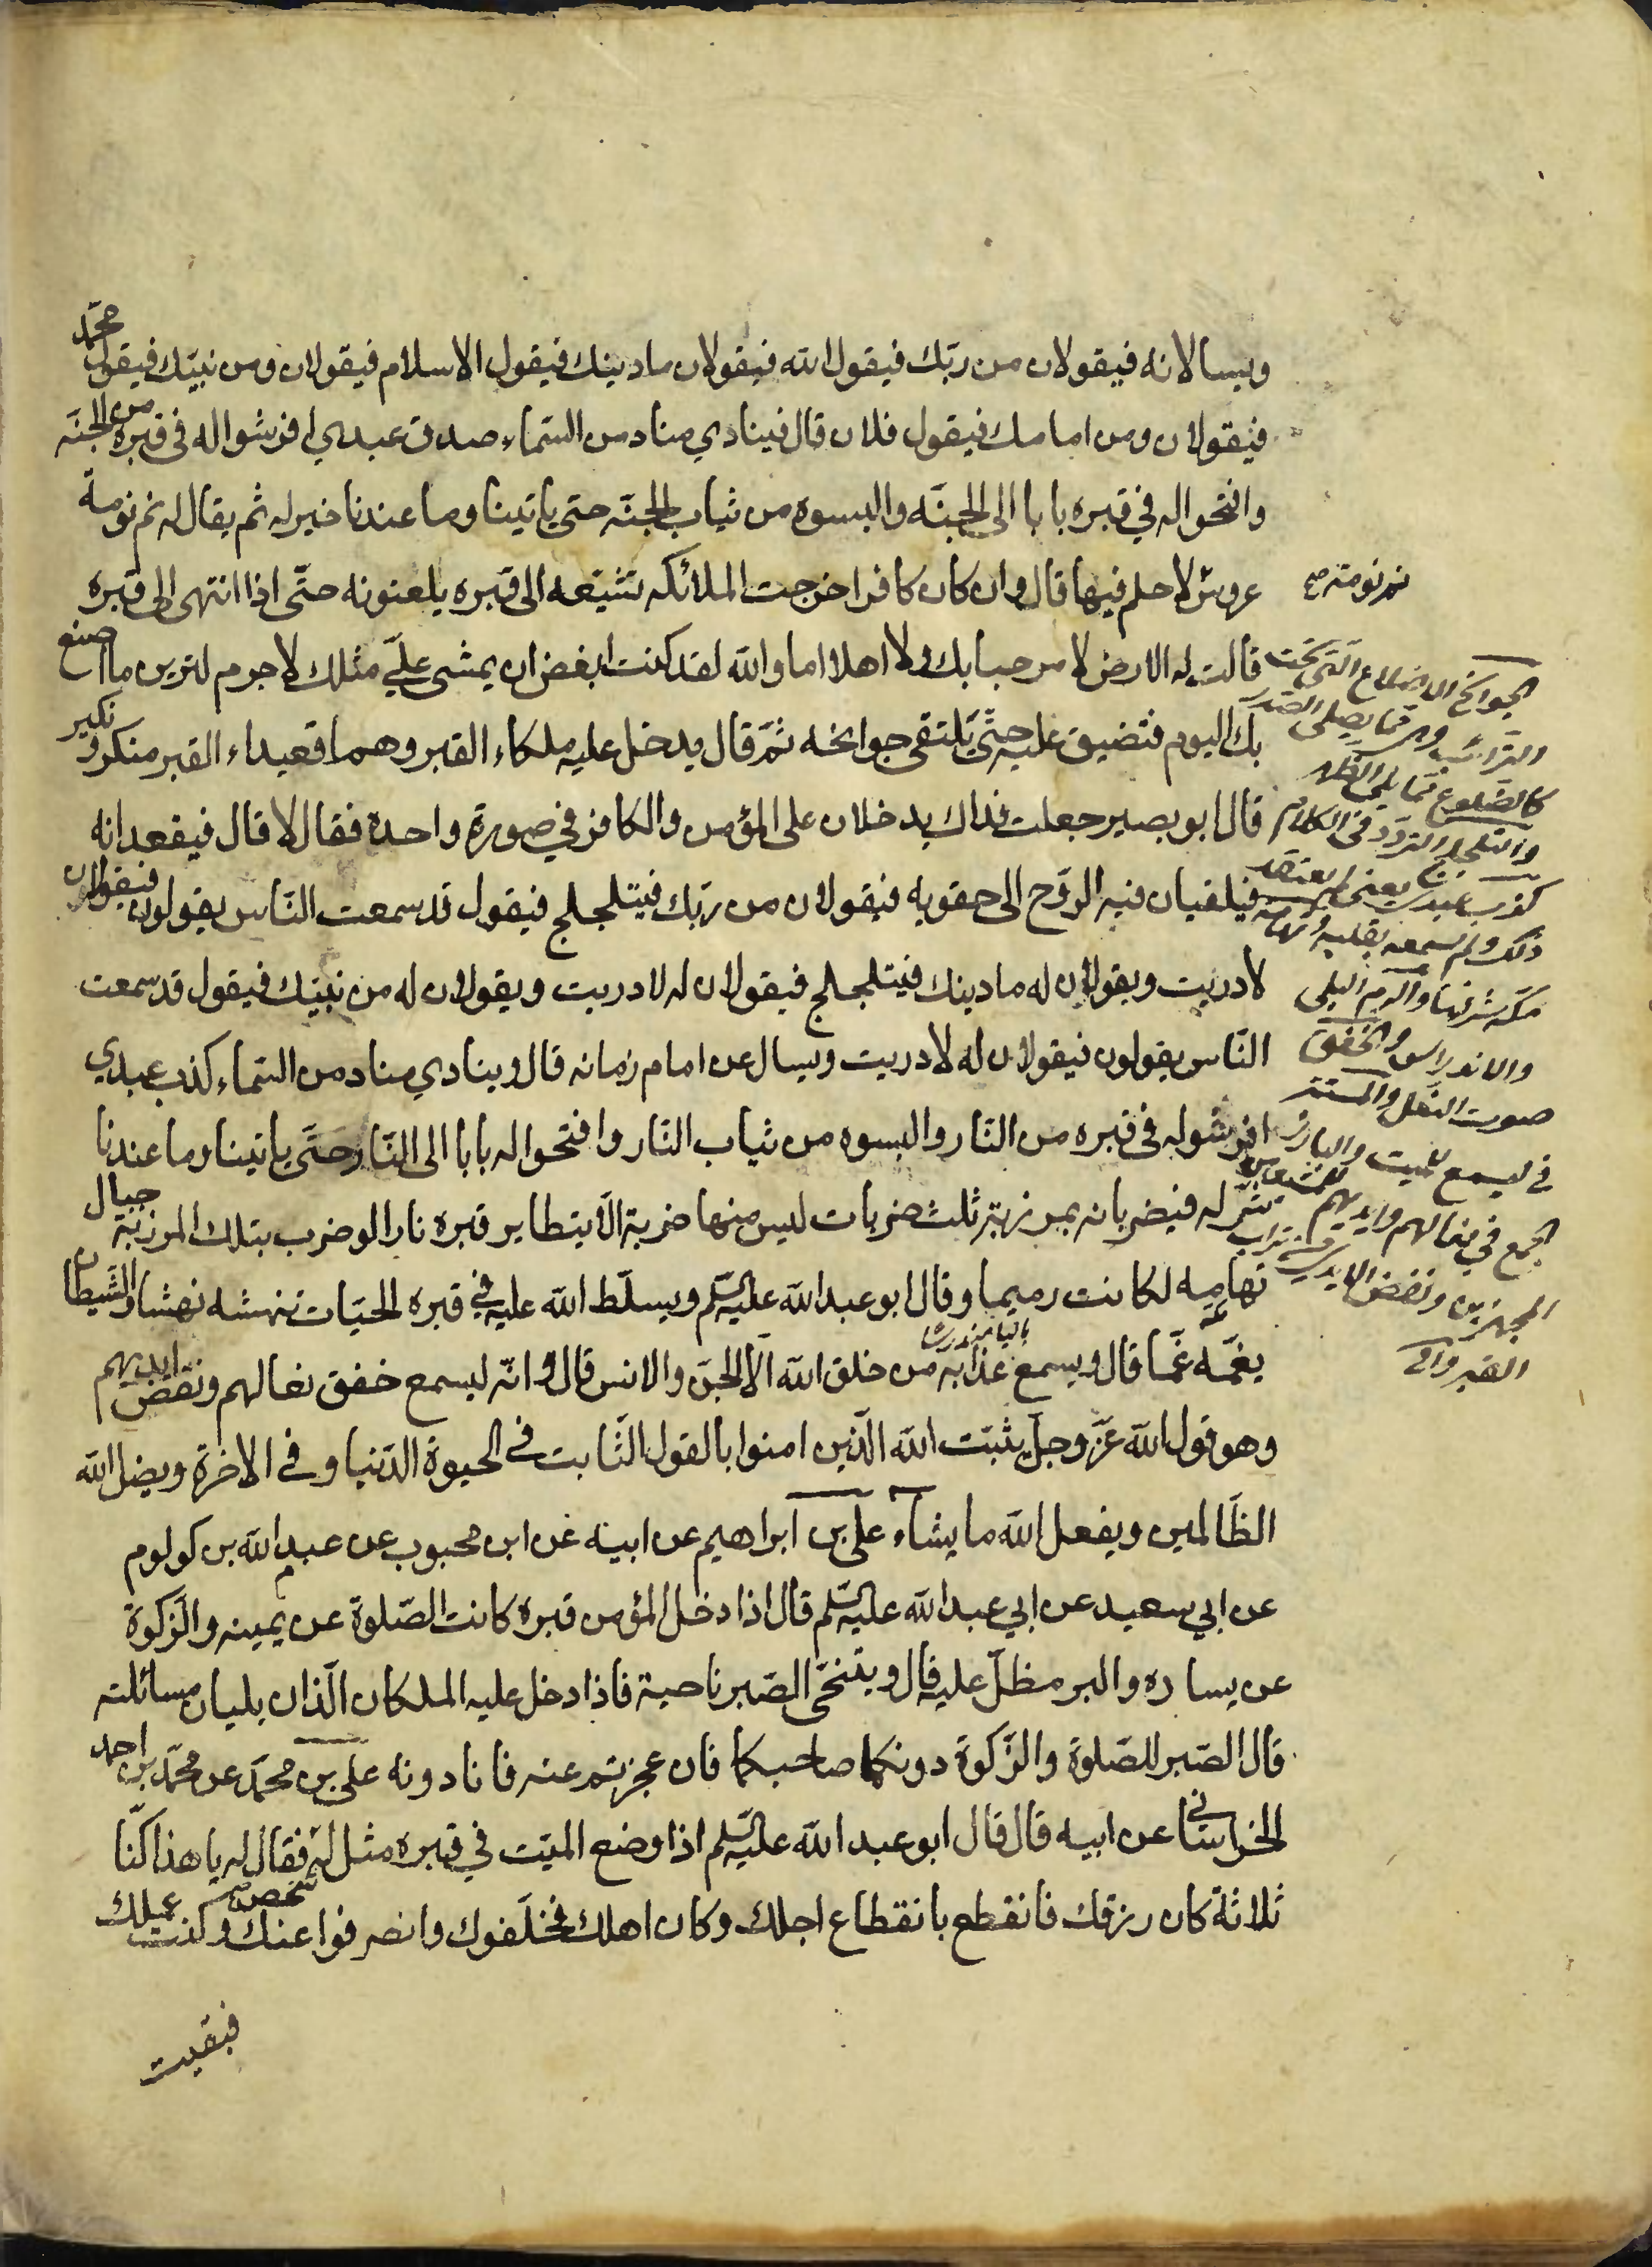 ويسالانه فيقولان من ربّك فيقول الله فيقولان ما دينك فيقول الاسلام فيقولان ومن نبيّك فيقول محمّد
فيقولان ومن امامك فيقول فلان قال فينادي مناد من السّماء صدق عبدي افرشوا له في قبره من الجنّه
وافتحوا له في قبره بابا الى الجنّه والبسوه من ثياب الجنّه حتى ياتينا وما عندنا خير له ثم يقال له نم نومة
عروس لا حلم فيها قال وان كان كافرا خرجت الملائكه تشيّعه الى قبره يلعنونه حتّى اذا انتهى الى قبره
قالت له الارض لا مرحبا بك ولا اهلا اما والله لقد كنت ابغض ان يمشى عليّ مثلك لا جرم لترين ما اصنع
بك اليوم فتضيق عليه حتّى يلتقى جوانحه ثمّ قال يدخل عليه ملكاء القبر وهما قعيداء القبر منكر ونكير
قال ابو بصير جعلت فداك يدخلان على المؤمن والكافر في صورة واحدة فقال لا قال فيقعدانه
فيلقيان فيه الروح الى حقويه فيقولان من ربّك فيتلجلج فيقول قد سمعت النّاس يقولون فيقولان
لا دريت ويقولان له ما دينك فيتلجلج فيقولان له لا دريت ويقولان له من نبيّك فيقول قد سمعت
النّاس يقولون فيقولان له لا دريت ويسال عن امام زمانه قال وينادي مناد من السّماء كذب عبدي
افرشوا له في قبره من النّار والبسوه من ثياب النّار وافتحوا له بابا الى النّار حتّى ياتينا وما عندنا
شرّ له فيضربانه بمرزبة ثلث ضربات ليس منها ضربة الّا يتطاير قبره نارا لو ضرب بتلك المرزبة جبال
تهامه لكانت رميما وقال ابو عبد الله عليه السّلم ويسلّط الله عليه في قبره الحيّات تنهشه نهشا والشّيطان
يغمّه غمّا قال ويسمع عذابه من خلق الله الّا الجنّ والانس قال وانّه ليسمع خفق نعالهم ونفض ايديهم
وهو قول الله عزّ وجلّ يثبّت الله الّذين امنوا بالقول الثّابت في الحيوة الدّنيا وفي الاخرة ويضل الله
الظّالمين ويفعل الله ما يشاء علي بن ابراهيم عن ابيه عن ابن محبوب عن عبد الله بن كولوم
عن ابي سعيد عن ابي عبد الله عليه السّلم قال اذا دخل المؤمن قبره كانت الصّلوة عن يمينه والزّكوة
عن يساره والبر مظلّ عليه قال ويتنحّى الصّبر ناحية فاذا دخل عليه الملكان الّذان يليان مسائلته
قال الصّبر للصّلوة والزّكوة دونكما صاحبكما فان عجزتم عنه فانا دونه علي بن محمّد عن محمّد بن احمد
الخراساني عن ابيه قال قال ابو عبد الله عليه السّلم اذا وضع الميّت في قبره مثل له شخص فقال له يا هذا كنّا
ثلاثة كان رزقك فانقطع بانقطاع اجلك وكان اهلك فخلّفوك وانصرفوا عنك وكنت عملك
فبقيت
نم نومة صح
الجوانح الاضلاع الّتي تحت
التّرائب وهى ممّا يلى الصّدر
كالضّلوع ممّا يلى الظّهر
والتلجلج التردّد في الكلام
كذب عبدي يعنى لم يعتقد
ذلك ولم يسمعه بقلبه وتهامة
مكّه شرّفها والرميم البلى
والاندراس والخفق
صوت النّعل والمستتر
في ليسمع للميت والبارز
الجمع في نعالهم وايديهم للمشيعين
المجهزين ونفض الايدي من تراب
القبر وافى